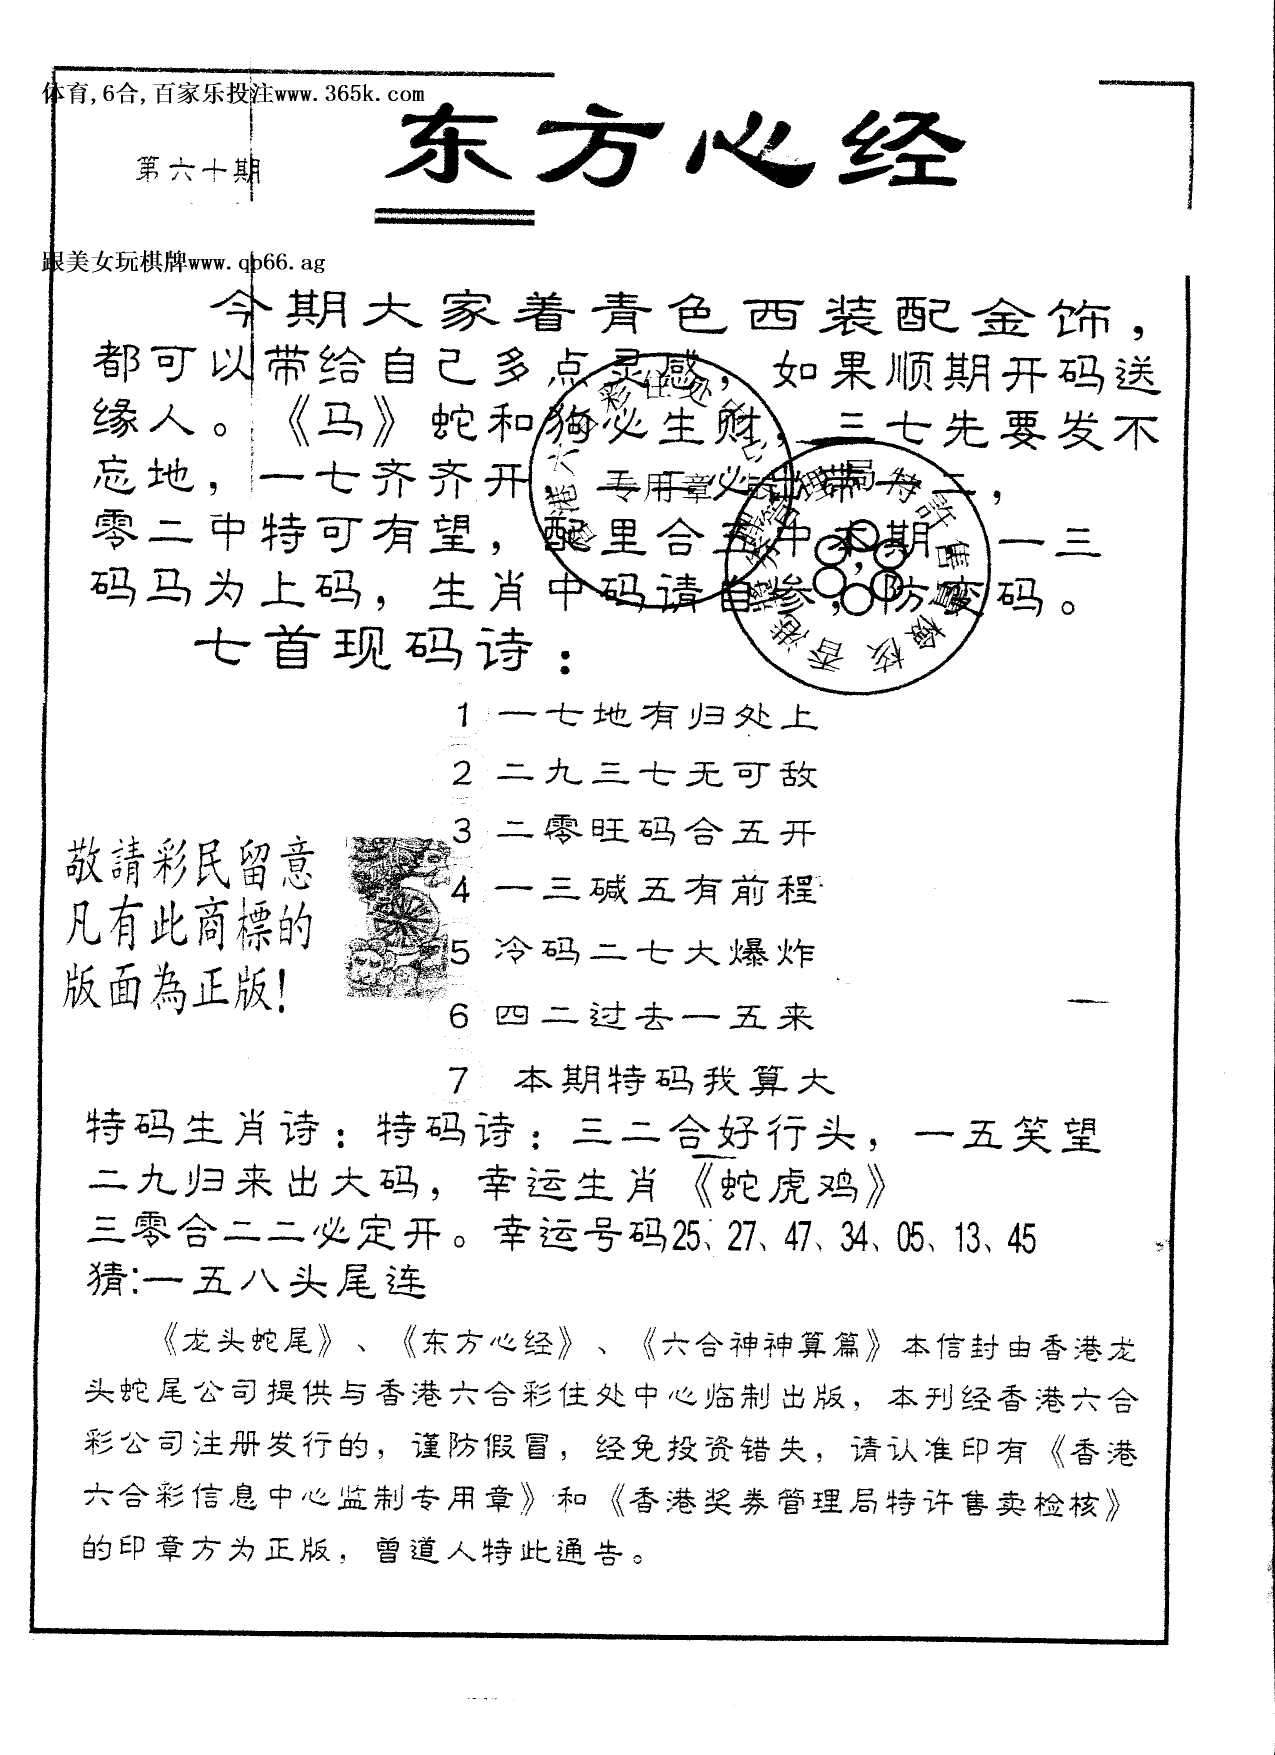 体育,6合,百家乐投注www.365k.com
东方心经
第六十期
跟美女玩棋牌www.qp66.ag
今期大家着青色西装配金饰，
都可以带给自己多点灵感，如果顺期开码送
缘人。《马》蛇和狗必生财，三七先要发不
忘地，一七齐齐开，
零二中特可有望，配里合五中本期，一三
码马为上码，生肖中码请自参，防变码。
专用章
七首现码诗：
1 一七地有归处上
2 二九三七无可敌
3 二零旺码合五开
4 一三碱五有前程
5 冷码二七大爆炸
6 四二过去一五来
7 本期特码我算大
敬請彩民留意
凡有此商標的
版面為正版!
特码生肖诗：特码诗：三二合好行头，一五笑望
二九归来出大码，幸运生肖《蛇虎鸡》
三零合二二必定开。幸运号码25、27、47、34、05、13、45
猜:一五八头尾连
《龙头蛇尾》、《东方心经》、《六合神神算篇》本信封由香港龙
头蛇尾公司提供与香港六合彩住处中心临制出版，本刊经香港六合
彩公司注册发行的，谨防假冒，经免投资错失，请认准印有《香港
六合彩信息中心监制专用章》和《香港奖券管理局特许售卖检核》
的印章方为正版，曾道人特此通告。